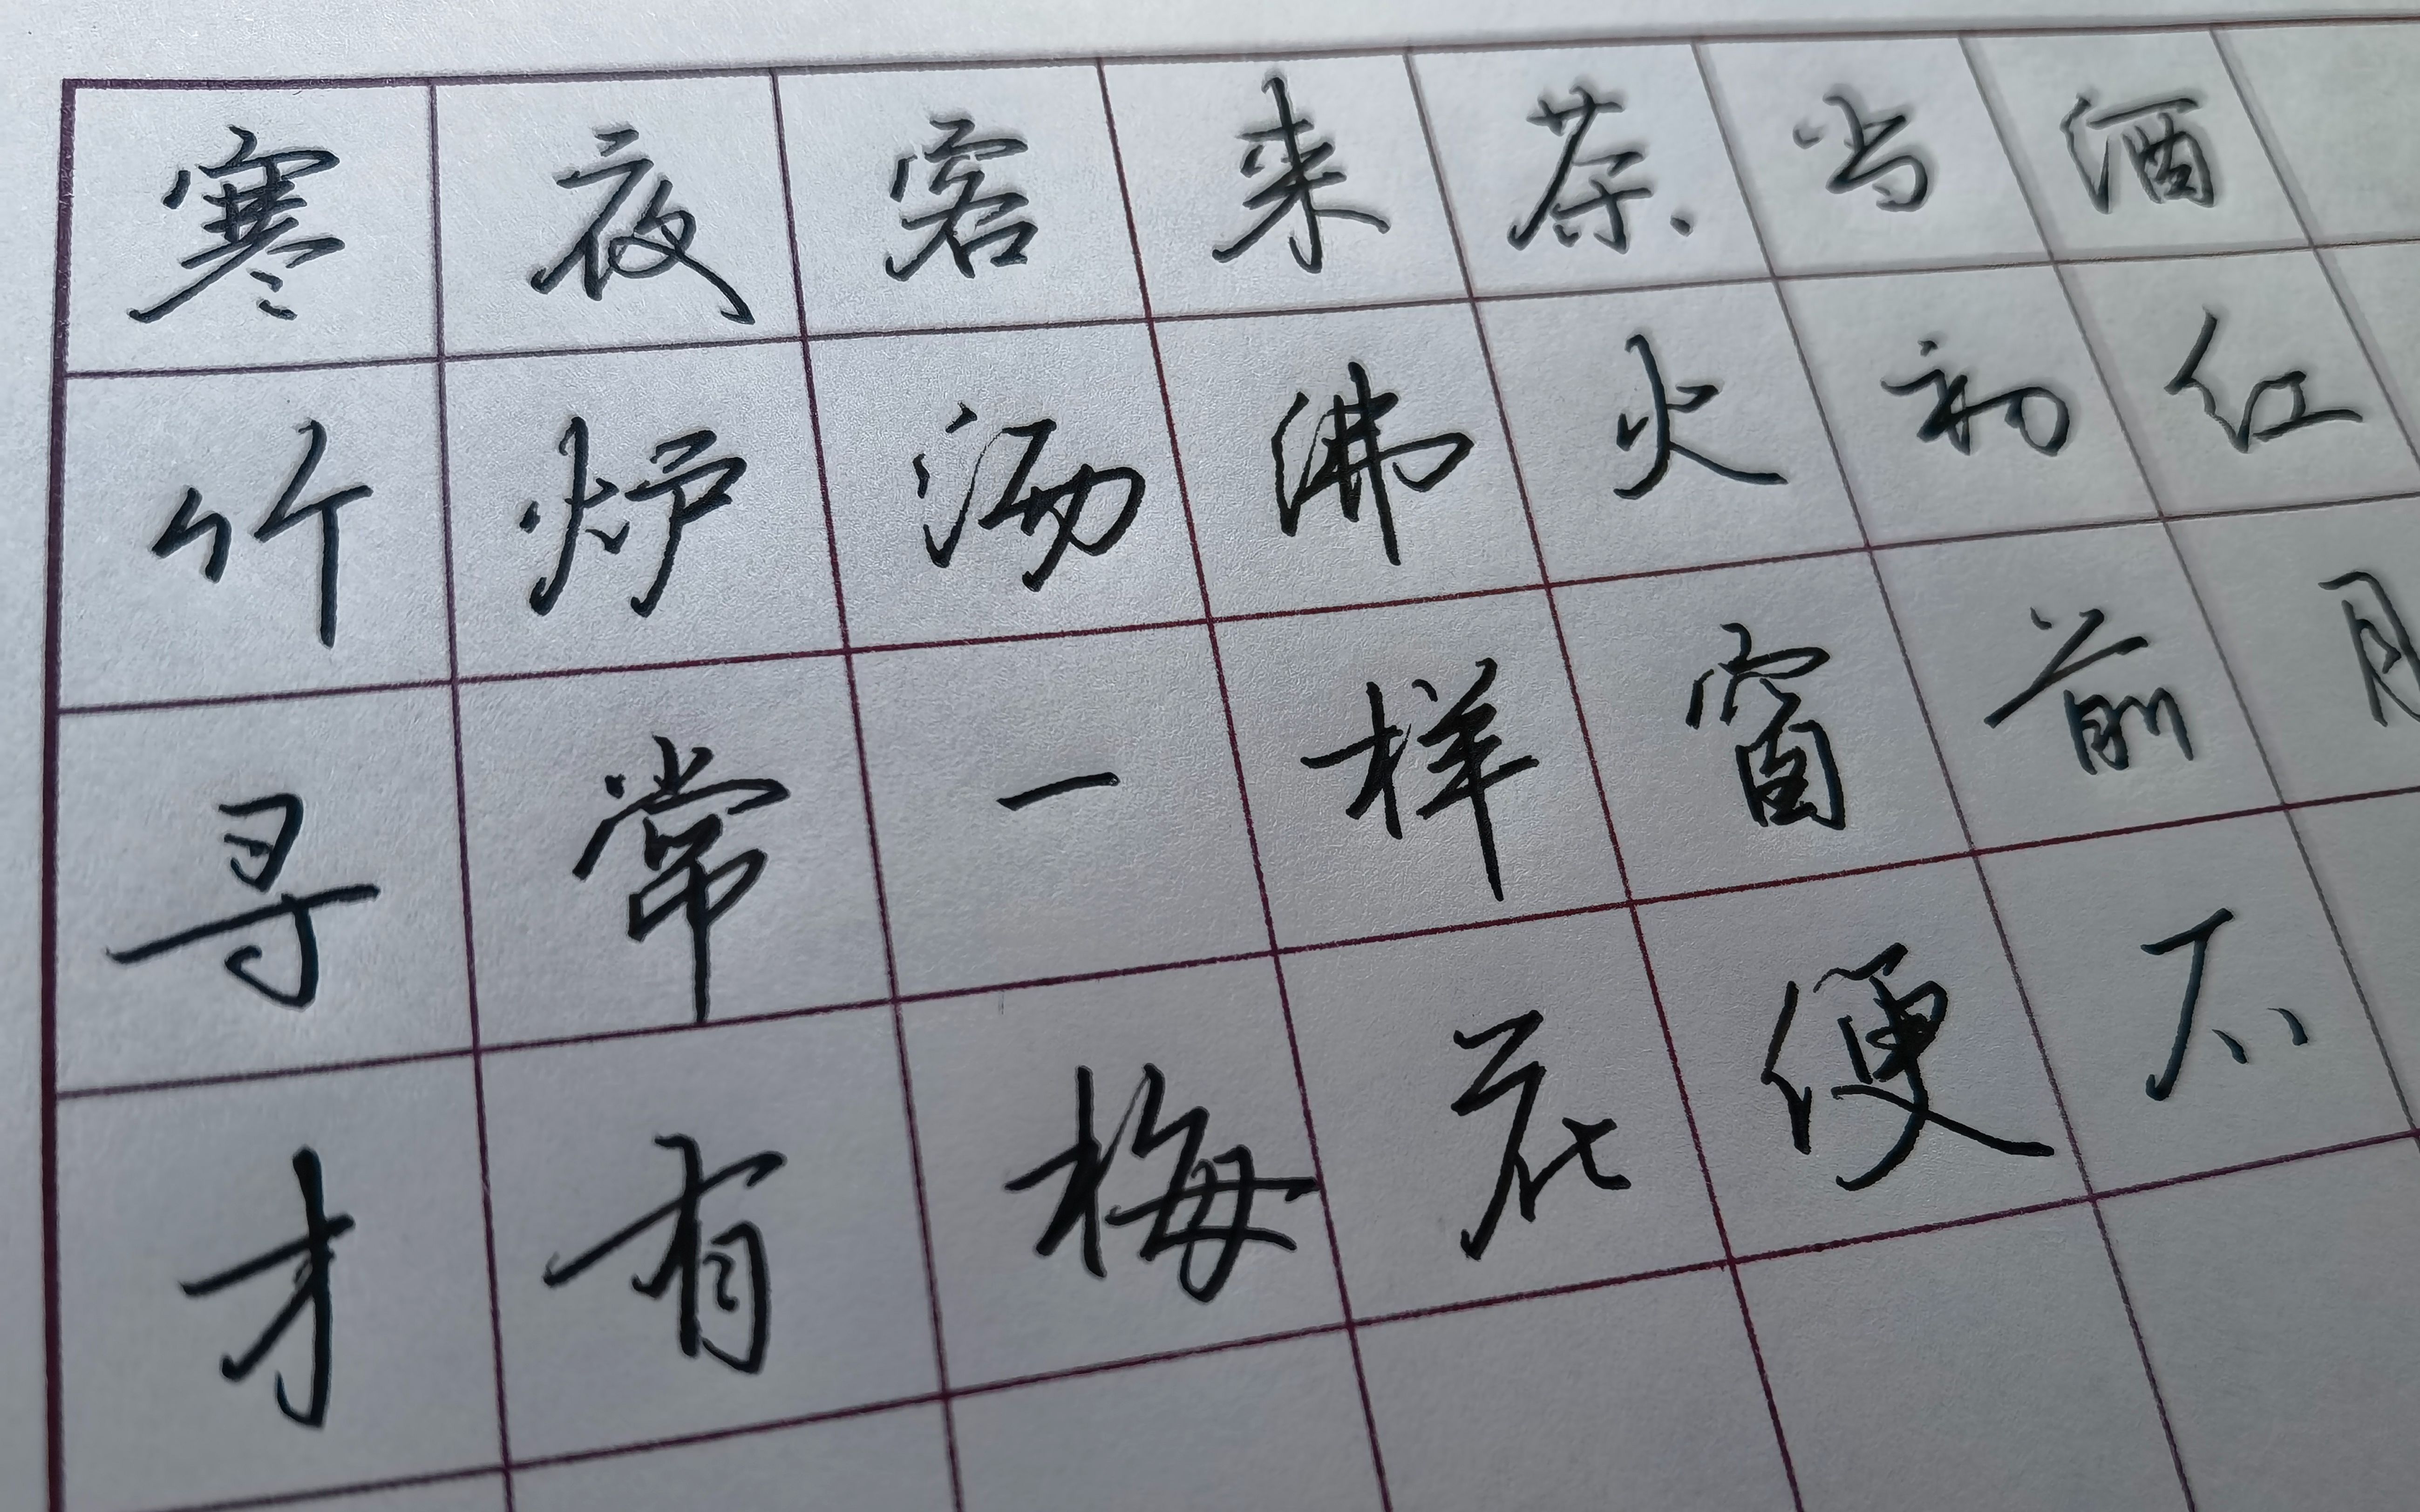 寒夜客来茶当酒
竹炉汤沸火初红
寻常一样窗前月
才有梅花便不